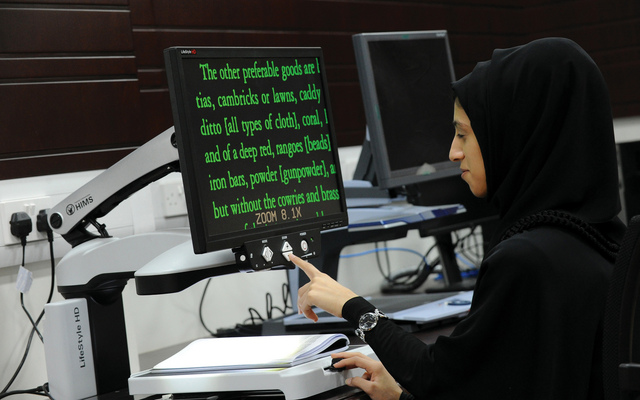 LifeStyle
The other preferable goods are
tias, cambricks or lawns, caddy
ditto [all types of cloth], coral,
and of a deep red, rangoes [beads]
iron bars, powder [gunpowder],
but without the cowries and brass
ZOOM 8.1X
HIMS
LifeStyle HD